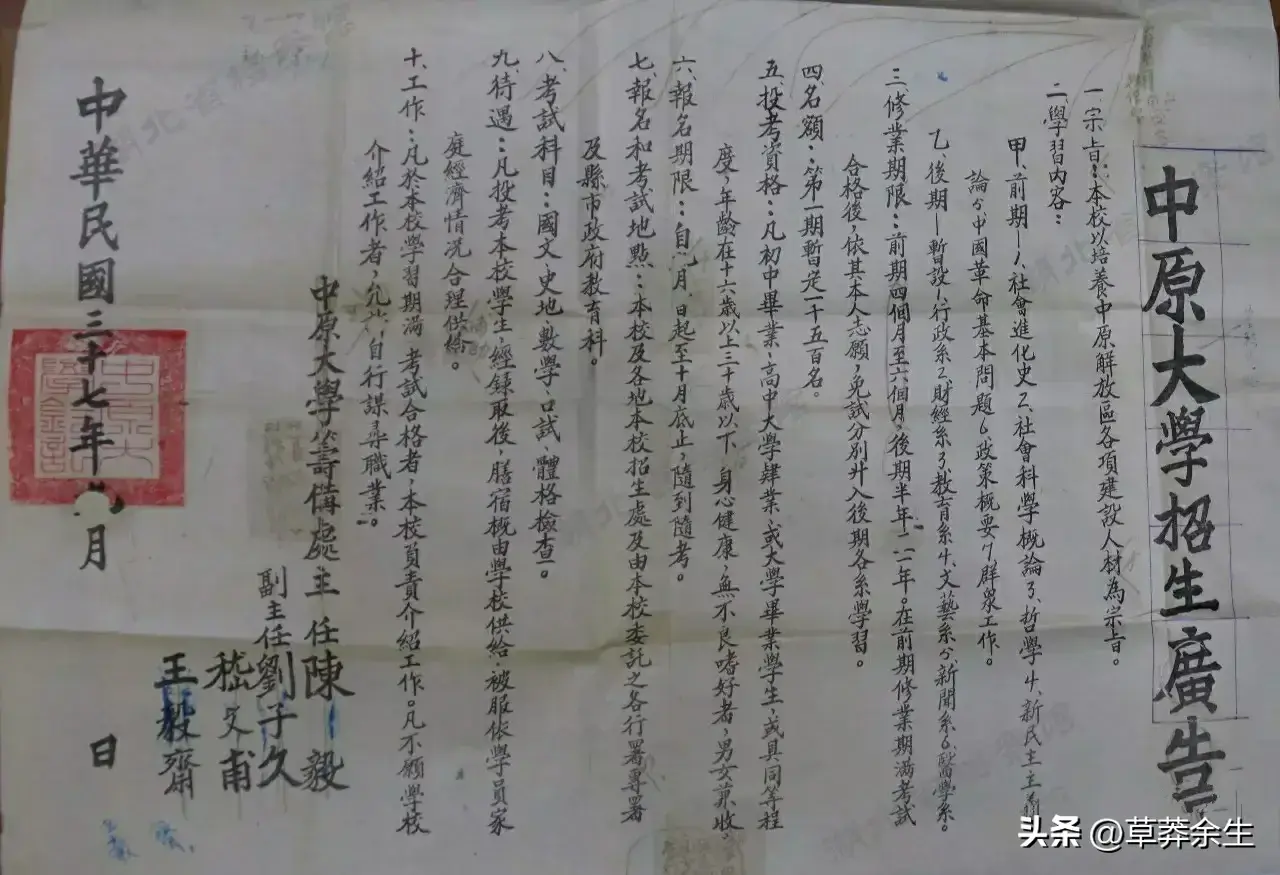 中原大學招生廣告
一、宗旨：本校以培養中原解放區各項建設人材為宗旨。
二、學習內容：
甲、前期—1、社會進化史2、社會科學概論3、哲學4、新民主主義
論5、中國革命基本問題6、政策概要7、群眾工作。
乙、後期—暫設1、行政系2、財經系3、教育系4、文藝系5、新聞系6、醫學系。
三、修業期限：前期四個月至六個月，後期半年—二年。在前期修業期滿考試
合格後，依其本人志願，免試分別升入後期各系學習。
四、名額：第一期暫定一千五百名。
五、投考資格：凡初中畢業，高中大學肄業，或大學畢業學生，或具同等程
度，年齡在十六歲以上三十歲以下，身心健康，無不良嗜好者，男女兼收。
六、報名期限：自九月 日起至十月底止，隨到隨考。
七、報名和考試地點：本校及各地本校招生處及由本校委託之各行署專署
及縣市政府教育科。
八、考試科目：國文、史地、數學、口試、體格檢查。
九、待遇：凡投考本校學生，經錄取後，膳宿概由學校供給，被服依學員家
庭經濟情況合理供給。
十、工作：凡於本校學習期滿，考試合格者，本校負責介紹工作。凡不願學校
介紹工作者，允許自行謀尋職業。
中原大學籌備處主任陳毅
副主任劉子久
嵇文甫
王毅齋
中華民國三十七年 月 日
头条 @草莽余生